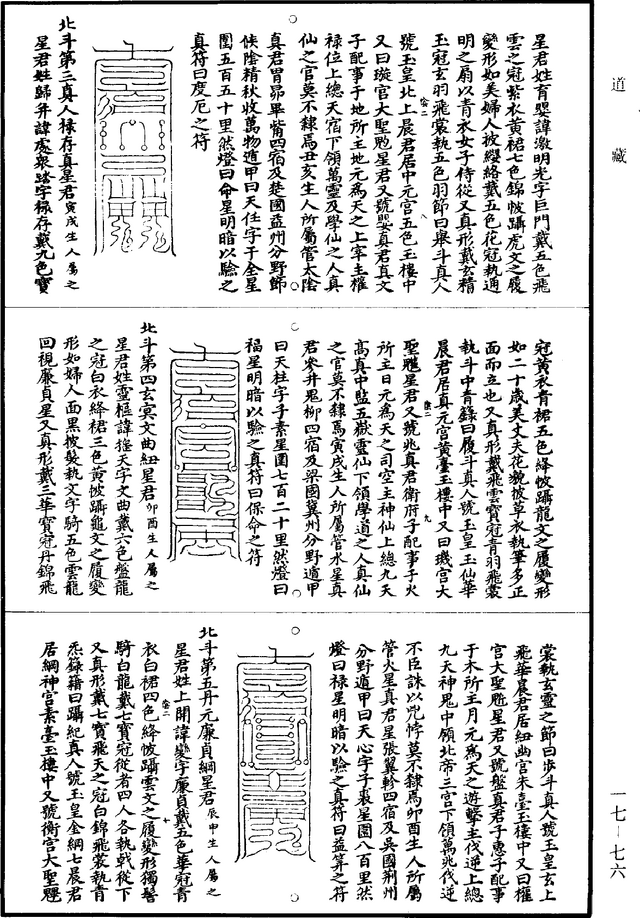 道藏
星君姓育嬰諱激明光字巨門戴五色飛
雲之冠紫衣黃裙七色錦帔躡虎文之履
變形如美婦人披纓絡戴五色花冠執通
明之扇以青衣女子侍從又真形戴玄精
玉冠玄羽飛裳執五色羽節曰舉斗真人
號玉皇北上晨君居中元宮五色玉樓中
又曰璇宮大聖𩲃星君又號嬰真君真文
子配事子地所主地元為天之上宰主權
祿位上總天宿下領萬靈及學仙之人真
仙之官莫不隸焉丑亥生人所屬管太陰
真君胃昴畢觜四宿及楚國益州分野節
俠陰精秋收萬物遁甲曰天任字子金星
圍五百五十里然燈曰命星明暗以驗之
真符曰度厄之符
北斗第三真人祿存真星君寅戌生人屬之
星君姓歸弁諱處衆踏字祿存戴九色寶
冠黃衣青裙五色絳帔躡龍文之履變形
如二十歲美丈夫花貌披草衣執筆多正
面而立也又真形戴飛雲寶冠青羽飛裳
執斗中青籙曰履斗真人號玉皇玉仙華
晨君居真元宮黃臺玉樓中又曰璣宮大
聖𩲃星君又號兆真君衛府子配事子火
所主日元為天之司空主神仙上總九天
高真中監五嶽靈仙下領學道之人真仙
之官莫不隸焉寅戌生人所屬管水星真
君參井鬼柳四宿及梁國冀州分野遁甲
曰天柱字子素星圍七百二十里然燈曰
福星明暗以驗之真符曰保命之符
北斗第四玄冥文曲紐星君卯酉生人屬之
星君姓靈樞諱搖天字文曲戴六色盤龍
之冠白衣絳裙三色黃帔躡龜文之履變
形如婦人面黑披髮執文字騎五色雲龍
回視廉貞星又真形戴三華寶冠丹錦飛
裳執玄靈之節曰步斗真人號玉皇玄上
飛華晨君居紐幽宮朱臺玉樓中又曰權
宮大聖𩲃星君又號盤真君子惠子配事
于木所主月元為天之遊擊主伐逆上總
九天神鬼中領北帝三宮下領萬兆伐逆
不臣誅以兇悖莫不隸焉卯酉生人所屬
管火星真君星張翼軫四宿及吳國荊州
分野遁甲曰天心字子裘星圍八百里然
燈曰祿星明暗以驗之真符曰益算之符
北斗第五丹元廉貞綱星君辰申生人屬之
星君姓上開諱變字廉貞戴五色華冠青
衣白裙四色絳帔躡雲文之履變形獨髻
騎白龍戴七寶冠從者四人各執戟從下
又真形戴七寶飛天之冠白錦飛裳執青
炁籙籍曰躡紀真人號玉皇金綱七晨君
居綱神宮素臺玉樓中又號衡宮大聖𩳐
一七—七六